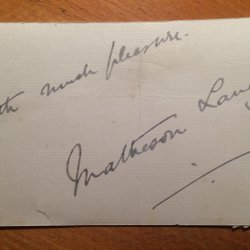 th much pleasure.
Matheson Lang